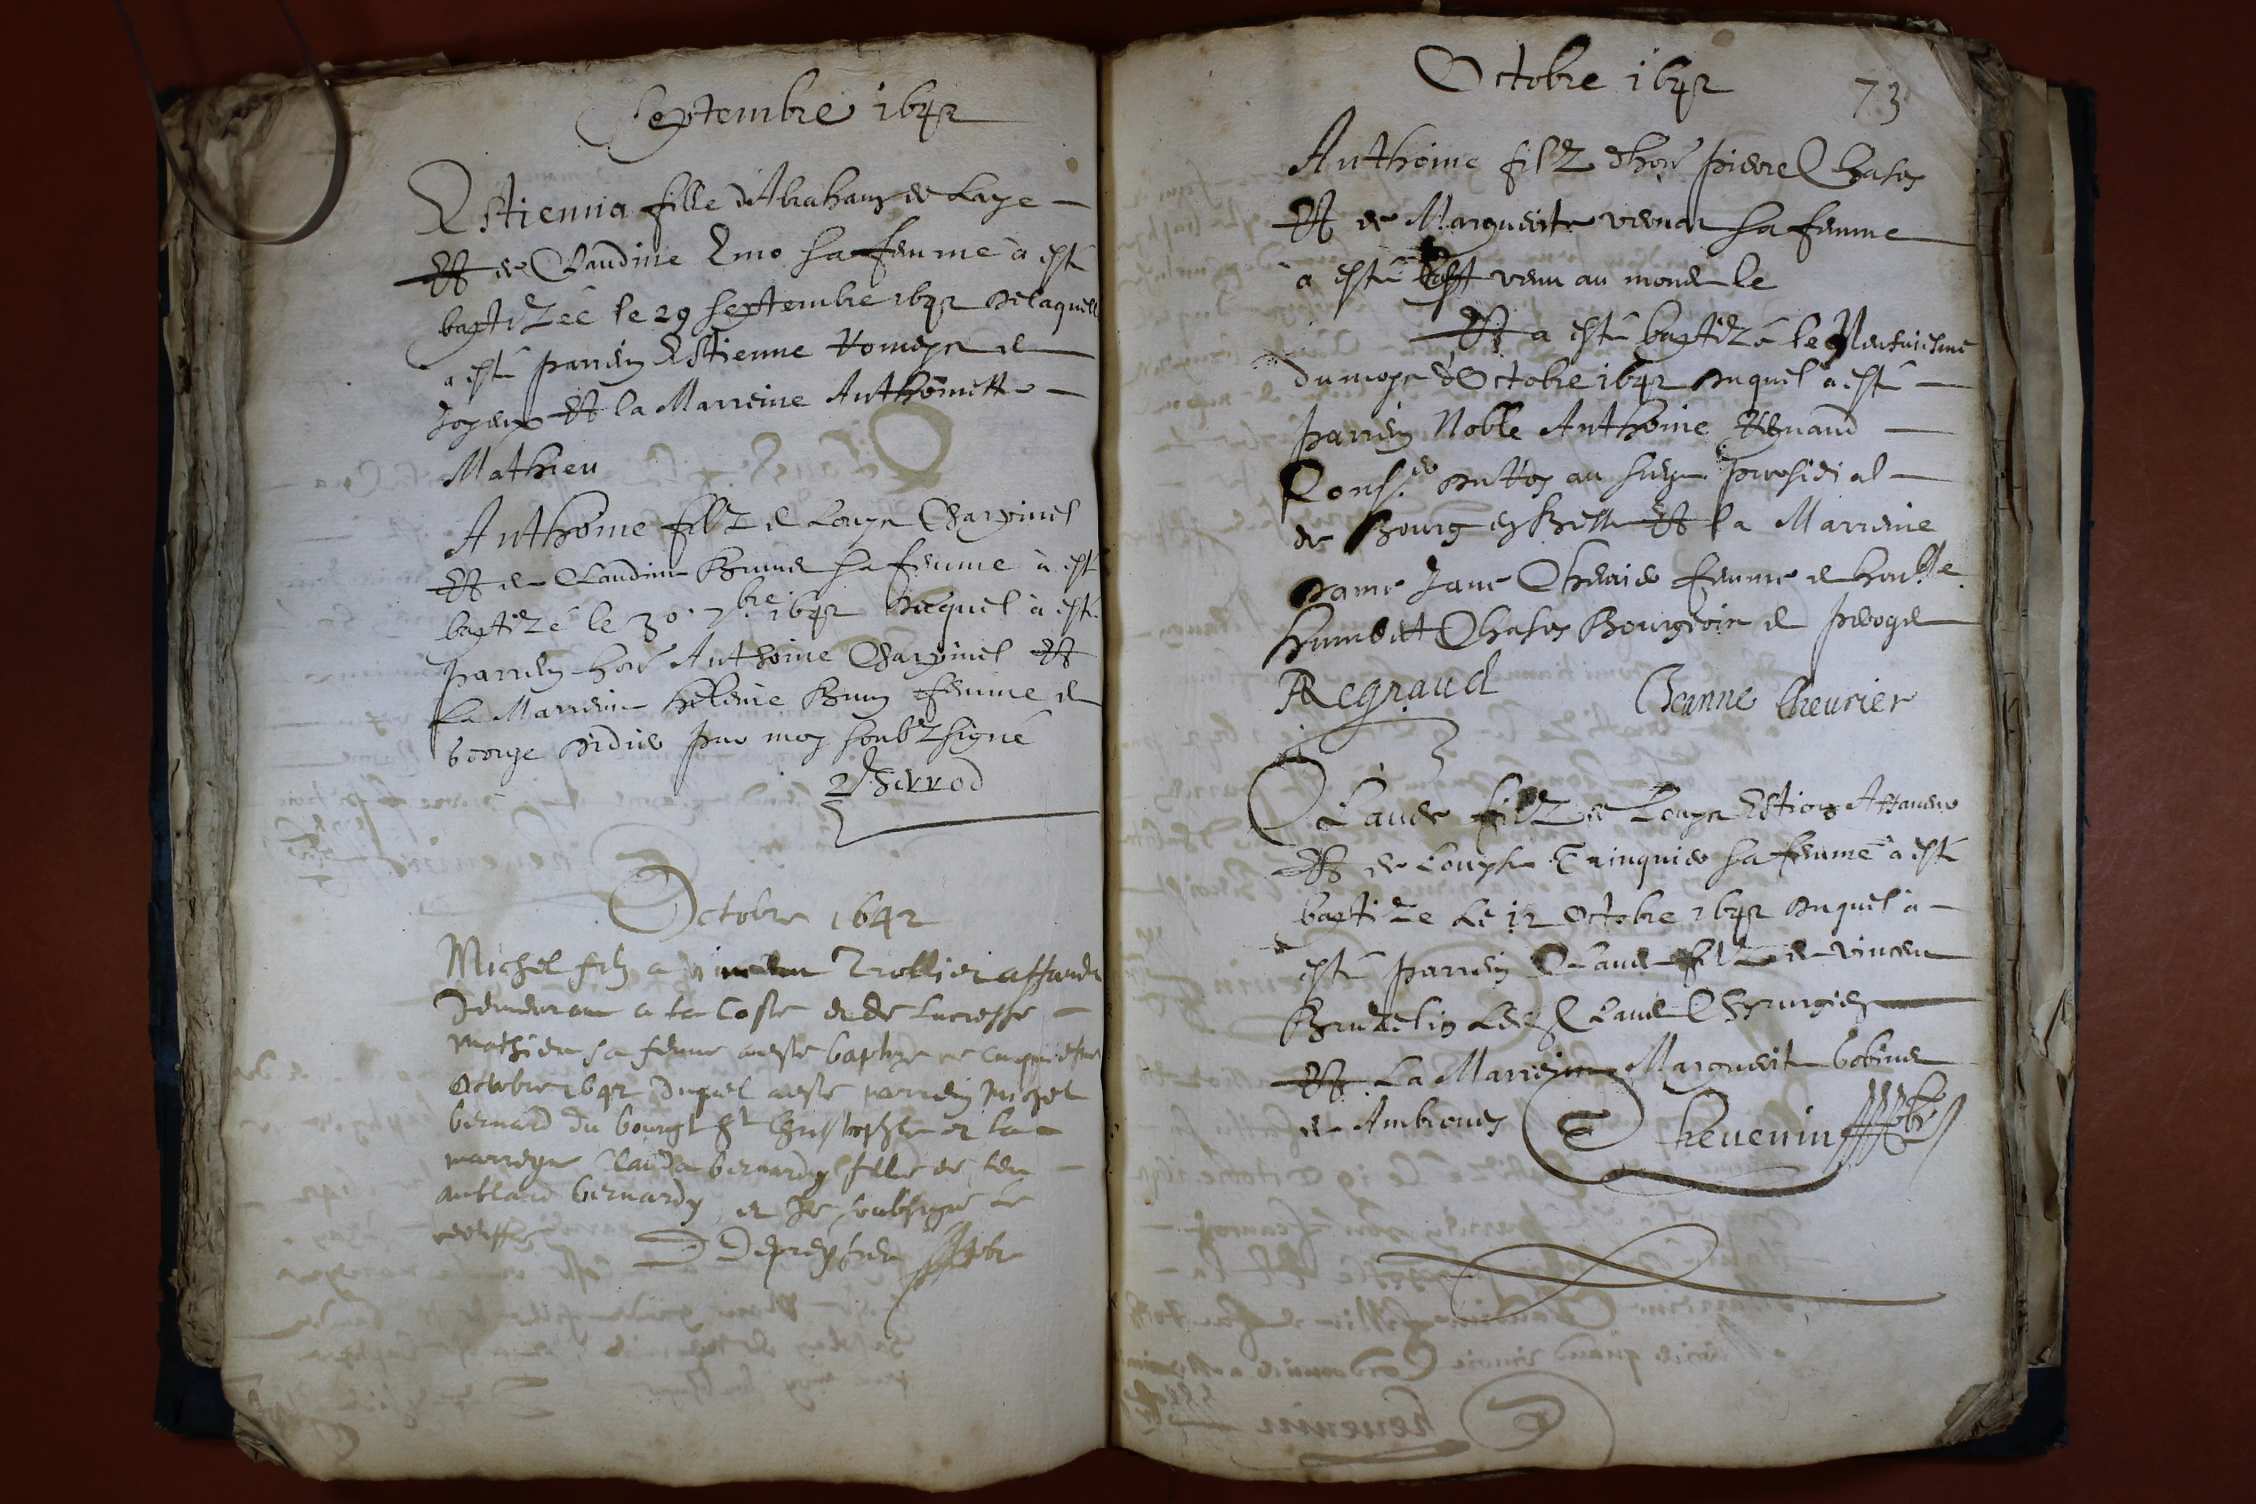 Septembre 1642
Estienna fille d'Abraham de Laye
Et de Claudine Emo sa femme a esté
baptizée le 29 septembre 1642 de laquelle
a esté parrein Estienne Romeyn de
Joyeux Et la Marreine Anthoinette
Mathieu
Anthoine filz de Louys Charpinel
Et de Claudine Brune sa femme à esté
baptizé le 30. 7bre. 1642 duquel à esté
parrein hon. Anthoine Charpinel Et
La Marreine heleine Brun femme de
George Didier par moy soubzsigné
Therrod
Octobre 1642
Michel filz a Trollier affaneur
Demeurant a la Coste et de Lucresse
Mathieu sa femme a este baptize ce cinquiesme
Octobre 1642 Duquel a este parrein Michel
bernard du bourgt St Christophle et la
marreyne Clauda bernardy fille de feu
bernardy et Je soubsigné Le
Depreyssieu pbr
Octobre 1642
73
Anthoine filz d'hon. pierre Chasos
Et de Marguerite vernat sa femme
a esté venu au monde le
Et a esté baptizé le Neufuiesme
du moys d'Octobre 1642 duquel a esté
parrein Noble Anthoine Regnaud
Cons.er du Roy au siege presidial
de Bourg en Bresse Et la Marreine
dame Jane Chevrier femme de honble.
humbert Chasos Bourgeois de peroge
ARegnaud Jeanne Cheurier
Claude filz de Louys Estion Affaneur
Et de Louyse Trinquier sa femme a esté
baptizé Le 12 Octobre 1642 duquel a
esté parrein Claude filz de vincent
Bruzelin Claude Chirurgien
Et La Marreyne Marguerite Gobine
de Ambronay Theuenin pbr